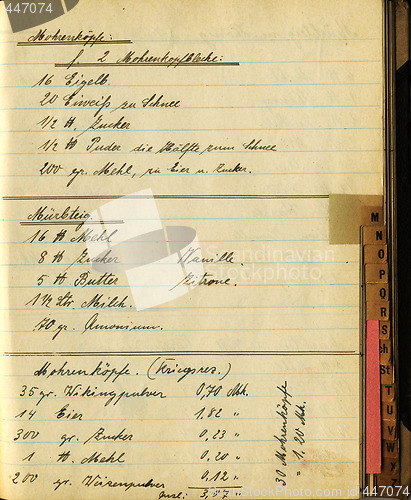 447074
Mohrenköpfe:
f. 2 Mohrenkopfbleche:
16 Eigelb.
20 Eiweiß zu Schnee
1/2 ℔, Zucker
1/2 ℔ Puder die Hälfte zum Schnee
200 gr. Mehl, zu Eier u. Zucker.
Mürbteig.
16 ℔ Mehl
8 ℔ Zucker Vanille.
5 ℔ Butter Zitrone.
1 1/2 Ltr. Milch.
70 gr. Amonium.
Mohrenköpfe. (Kriegsrez.)
35 gr. Wikingpulver 0,70 Mk.
14 Eier 1,82 "
300 gr. Zucker 0,23 "
1 ℔ Mehl 0,20 "
200 gr. 0,12 "
30 Mohrenköpfe
= 1.20 Mk.
M
N
O
P
Q
R
S
Sch
St
T
U
V
W
X
Scandinavian
StockPhoto
447074